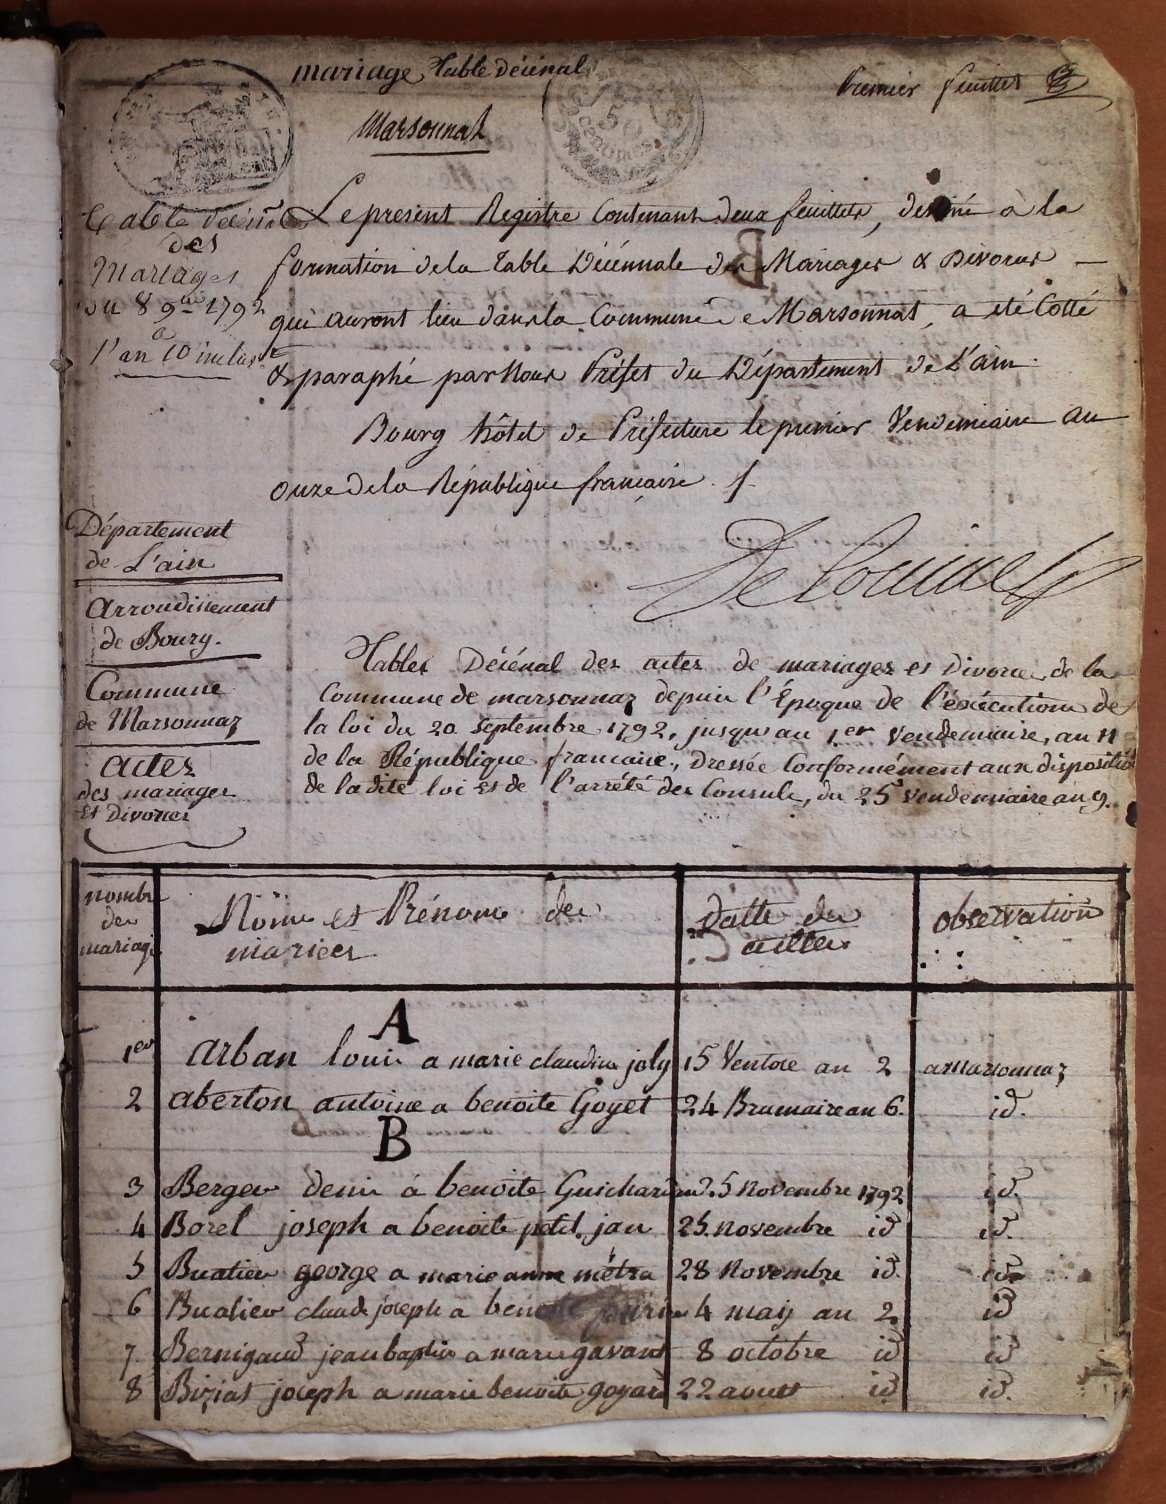 mariage, Table Décénal
Premier feuillet
Marsonnat
50 CENTIMES
Table décénale
des
Mariages
du 8 9bre 1792
a
l'an 10 inclus
Le présent Registre Contenant deux feuillets, destiné à la
formation de la Table Décénnale des Mariages & Divorces
qui auront lieu dans la Commune de Marsonnat, a été Cotté
& paraphé par Nous Préfet du Département de L'ain.
Bourg hôtel de Préfecture le premier Vendemiaire an
onze de la République française.
Département
de L'ain
arrondissement
de Bourg.
Commune
de Marsonnaz
actes
des mariages
et divorces
Tables Décénal des actes de mariages et Divorces de la
Commune de marsonnaz depuis l'Époque de l'éxécution de
la loi du 20 septembre 1792, jusqu'au 1er vendemiaire, an 11
de la République francaise, Dressée Conformément aux dispositions
de la dite loi et de l'arrété des Consuls, du 25 vendemiaire an 9.
nombre des mariages
Noms et Prénoms des mariées
datte des actes
observation
A
1er arban louis a marie claudine joly 15 Ventose an 2 a marsonnaz
2 aberton antoine a benoite Goyet 24 Brumaire an 6. id.
B
3 Berger denis à benoite Guichard 25 novembre 1792 id.
4 Borel joseph a benoite petit jan 25 novembre id id.
5 Buatier george a marie anne métra 28 Novembre id. id
6 Buatier claude joseph a benoite 4 maij an 2 id
7 Bernigaud jean baptiste a marie gavand 8 octobre id id
8 Biziat joseph a marie benoite goyard 22 aoust id id.